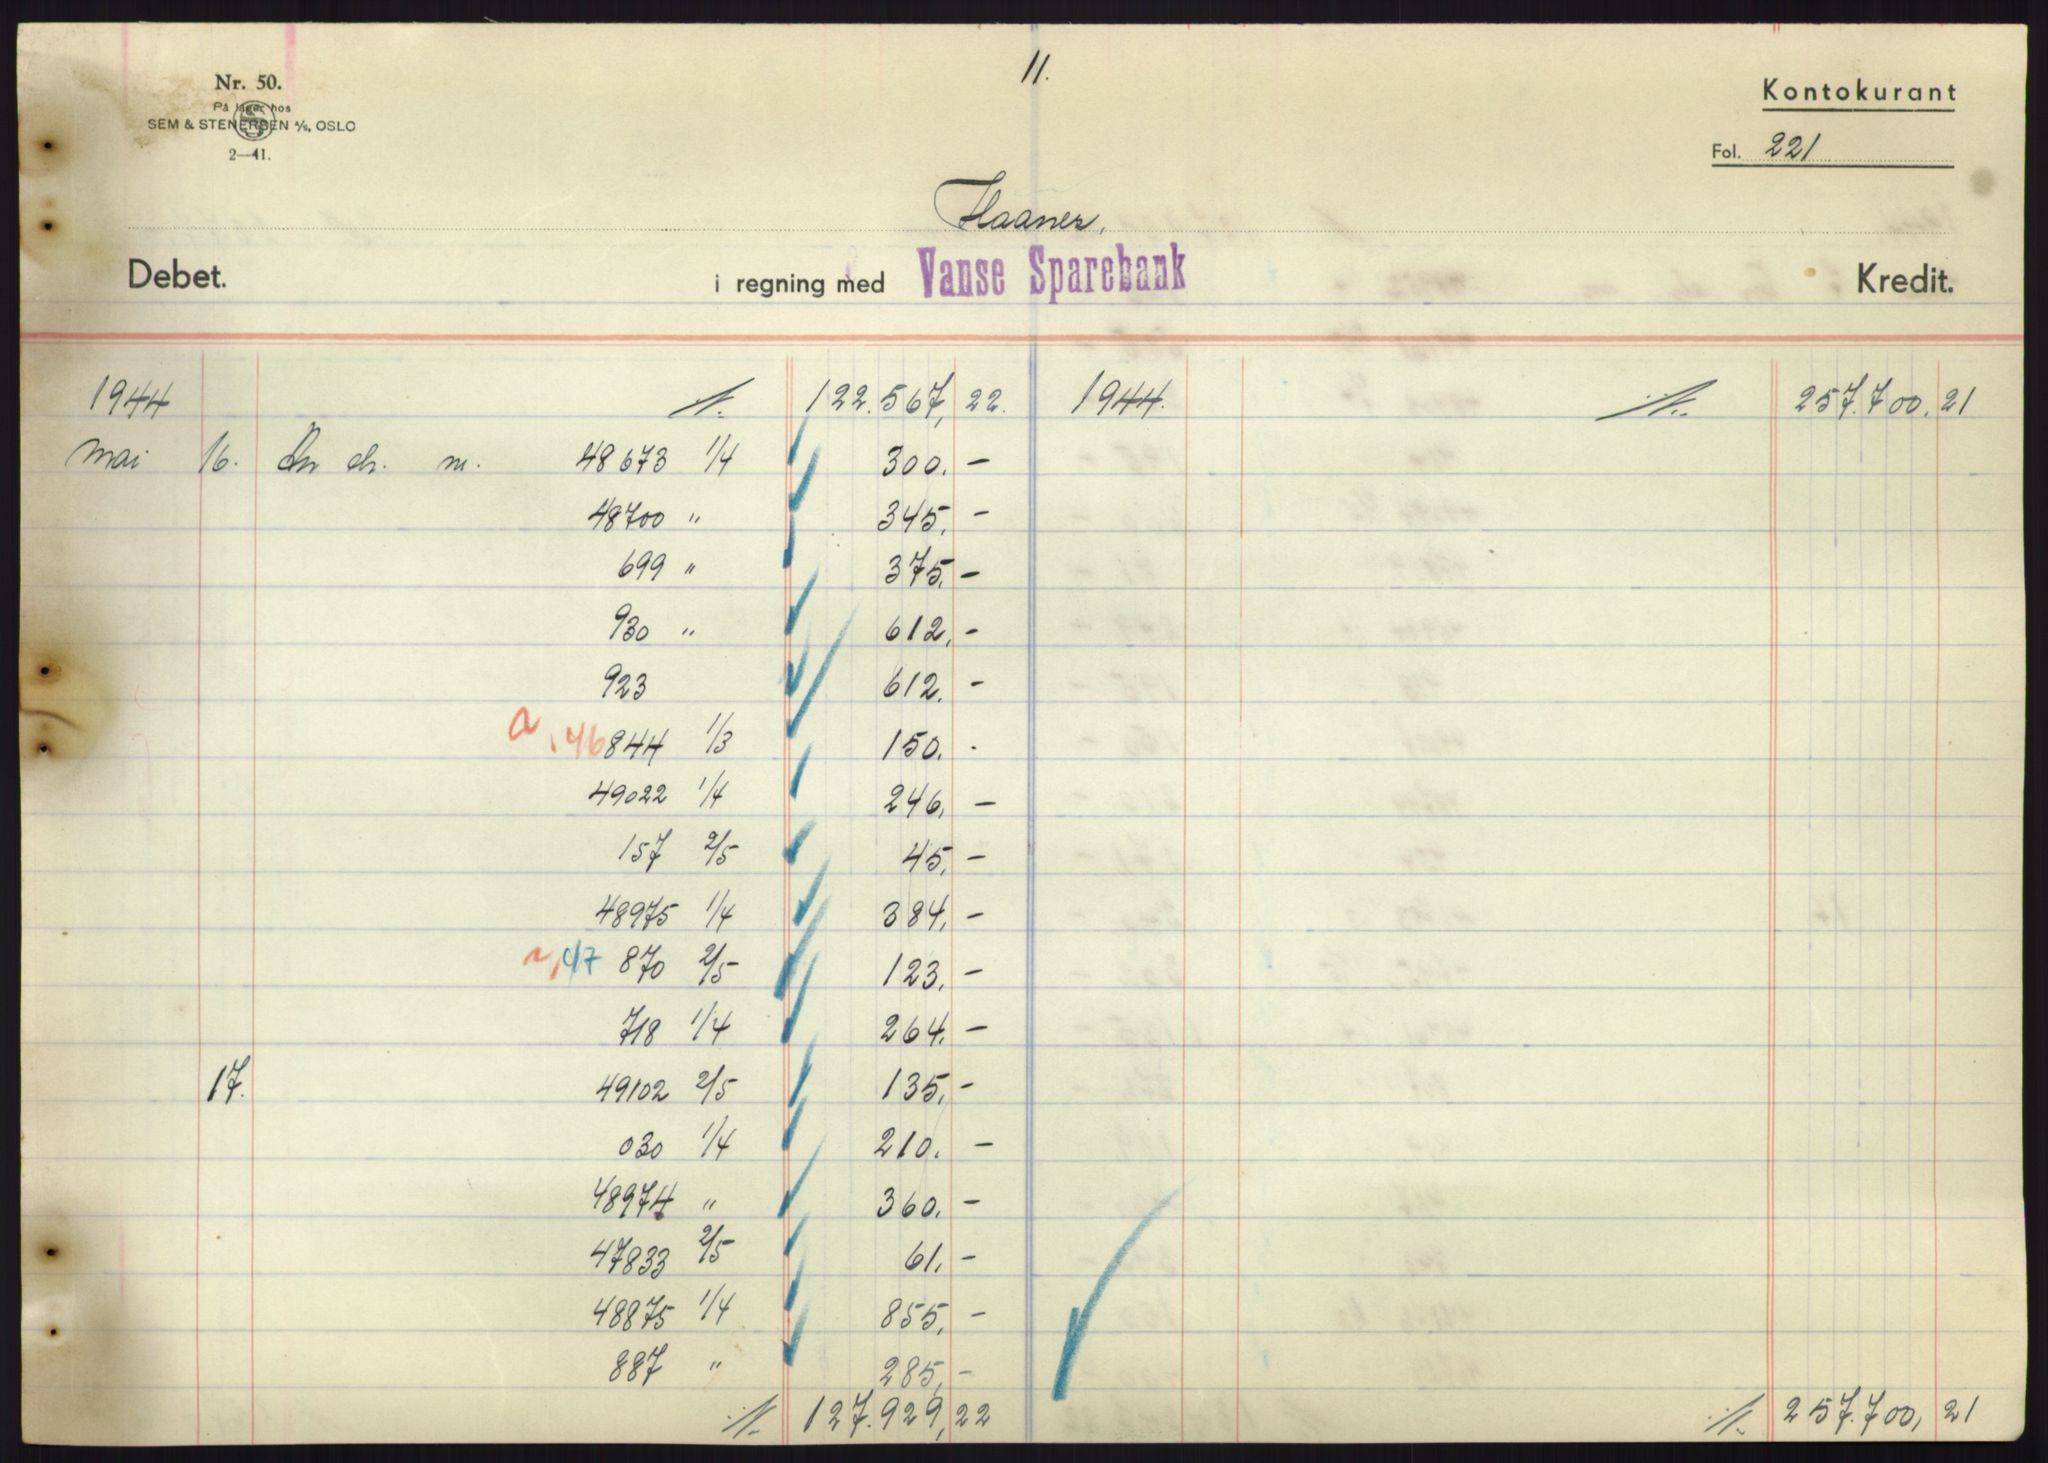 11.
Nr. 50.
På lager hos
SEM & STENERSEN A/S, OSLO
2—41.
Kontokurant
Fol. 221
Haanes.
Debet. i regning med Vanse Sparebank Kredit.
1944 122.567,22. 1944. 257.700.21
Mai 16. An ch. nr. 48673 1/4 300.—
48700 " 345.—
699 " 375.—
930 " 612.—
923 612.—
a, 46844 1/3 150.-
49022 1/4 246.—
157 2/5 45.—
48975 1/4 384.—
47 870 2/5 123.—
718 1/4 264.—
17. 49102 2/5 135.—
030 1/4 210.—
48974 " 360.—
47833 2/5 61.—
48875 1/4 855.—
887 " 285.—
127.929,22 257.700,21